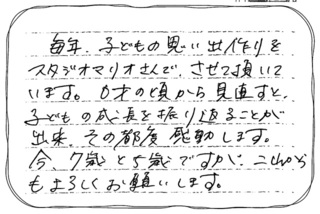 毎年、子どもの思い出作りを
スタジオマリオさんで、させて頂いて
います。0才の頃から見直すと、
子どもの成長を振り返ることが
出来、その都度感動します。
今、7歳と5歳ですが、これから
もよろしくお願いします。